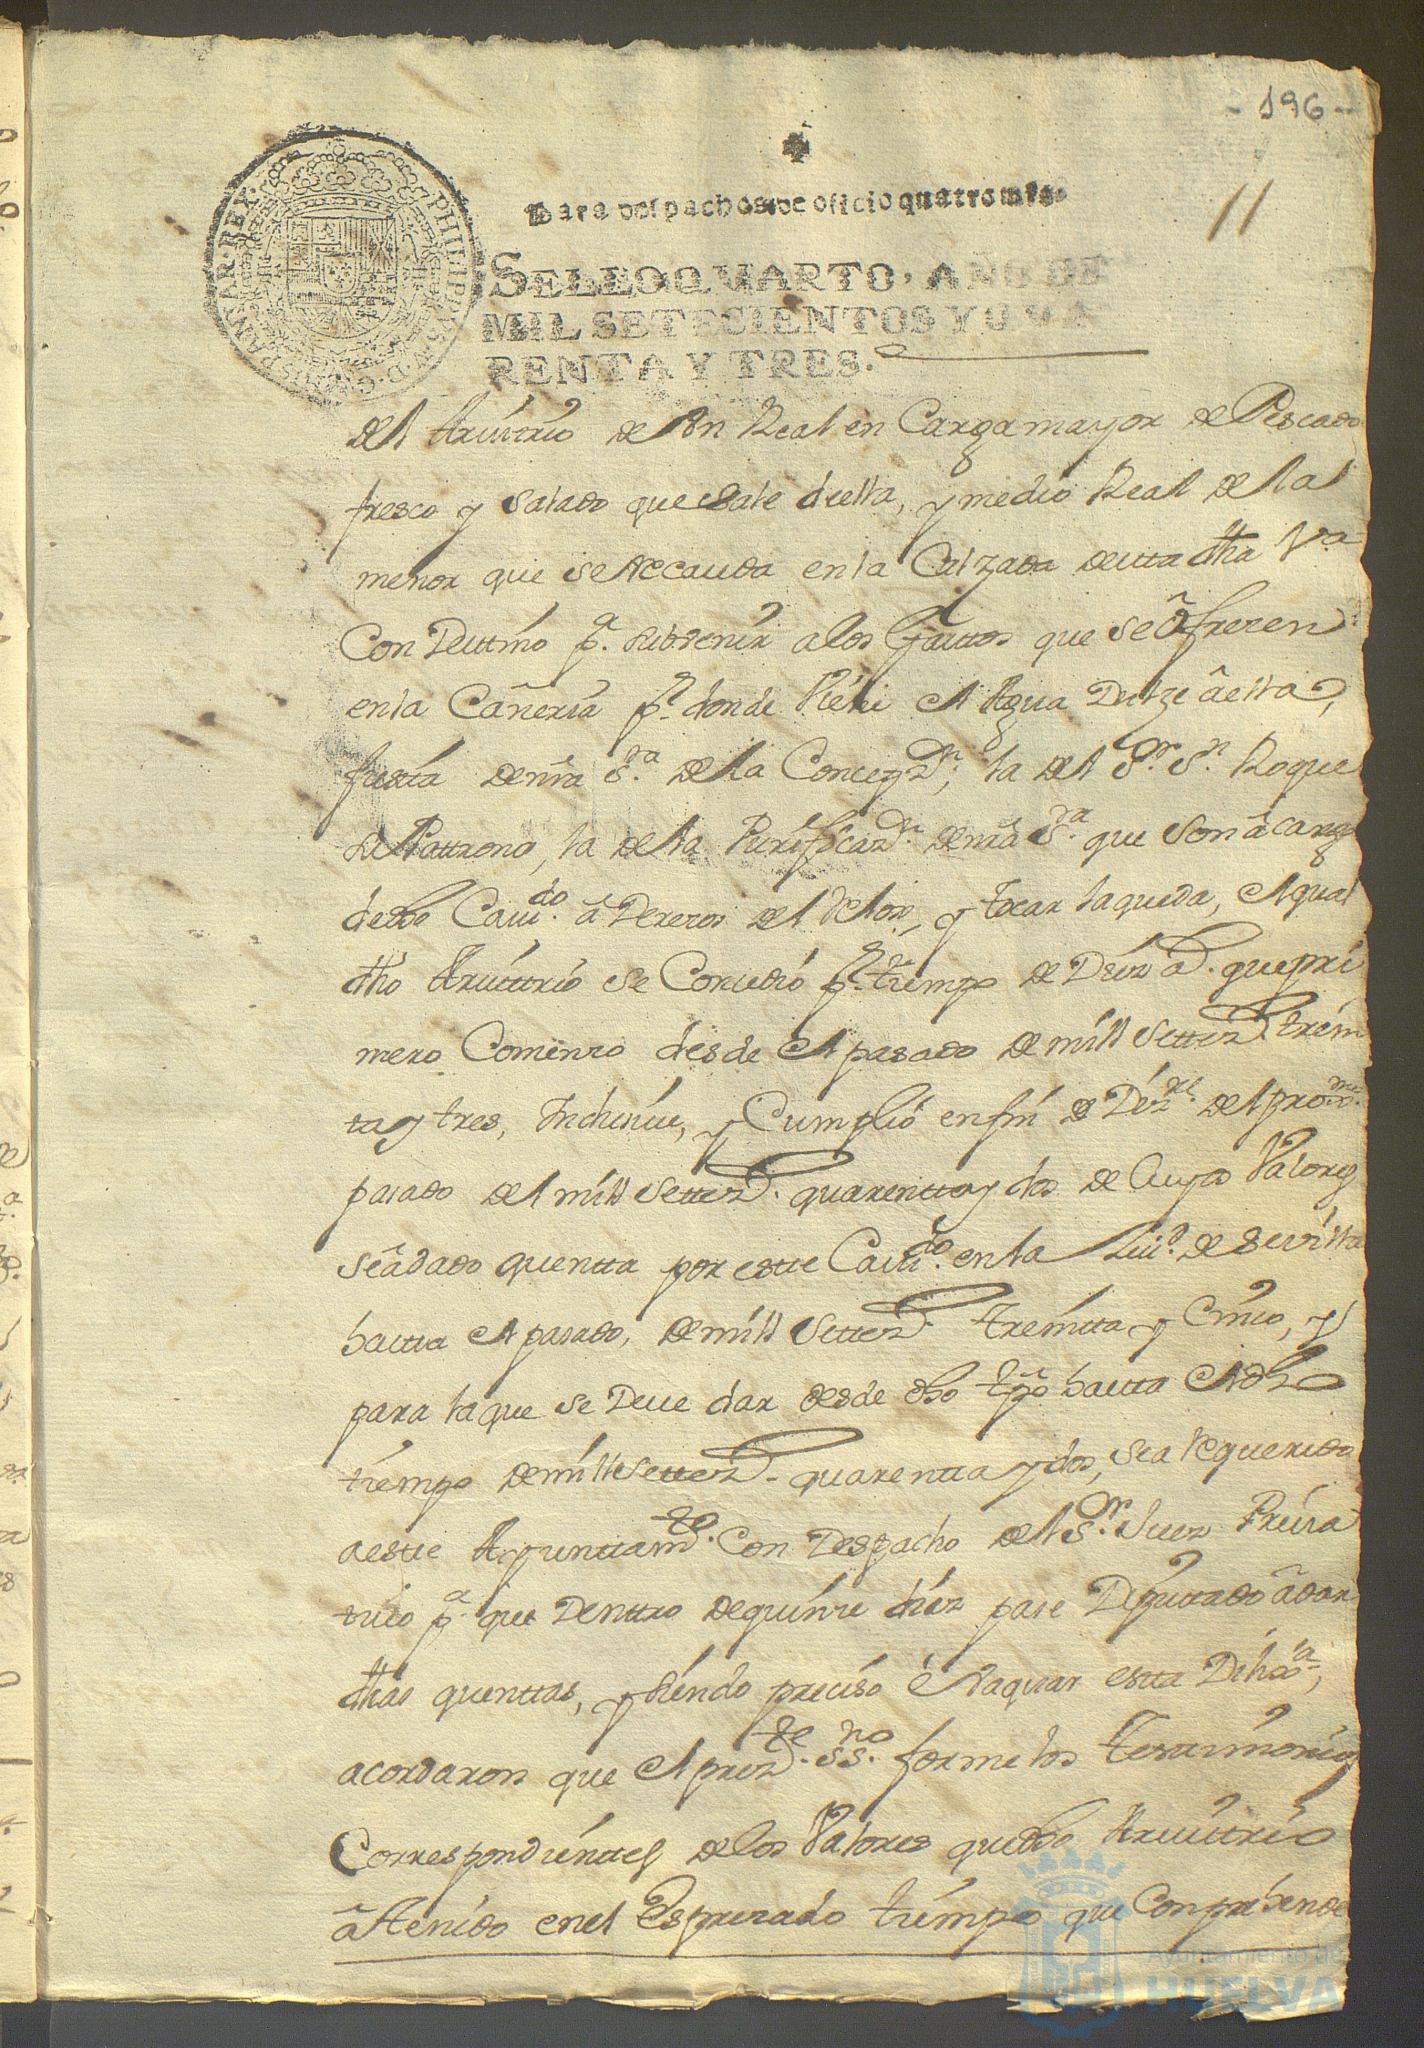 - 196 -
11
Para despachos de oficio quatro mrs.
SELLO QUARTO, AÑO DE
MIL SETECIENTOS Y QUA
RENTA Y TRES.
PHILIPPUS V. D. G. HISPANIAR. REX
del Aruitrio de Vn Real en Carga mayor de Pescado
fresco y salado que sale de ella, y medio Real de la
menor que se Reccauda en la Calzada de esta dha Va
Con Destino pa. subvenir a los Gastos que se ofrezen
en la Cañeria pr. donde Viene el Agua Dulze â esta,
fiesta de nra Sra. de la Concepzn; la del Sr. Sn. Roque
su Pattrono, la de la Purificazn. de nra Sra. que son â cargo
de dho Cauido. â Derezos del Relox, y tocar la queda, el qual
dho Aruittrio se Conzedió pr. tiempo de Diez as. que pri
mero Comenzo desde el pasado de mill Settezs. trein
ta y tres, Inclusiue, y Cumplió en fin de Dizre. del proxme.
pasado del mill Settezs. quarentta y dos de Cuyos Valores
se â dado quentta por este Cauido. en la Ciud. de Sevilla
hasta el pasado, de mill Settezs. treintta y Cinco, y
para la que se Deue dar desde dho tpo hasta el dho
tiempo de mill Settezs. quarentta y dos, se a Requerido
a este Ayunttamto. Con Despacho del Sr. Juez Priua
tiuo pa. que Dentro de quinze diaz pase Diputado â dar
dhas quenttas, y siendo preciso êvaquar esta Dilixa,
acordaron que el prezte. ssno. forme los Testtimonios
Correspondienttes de los Valores que dho Aruittrio
â tenido en el Espresado tiempo que Comprehende
Ayuntamiento de
HUELVA